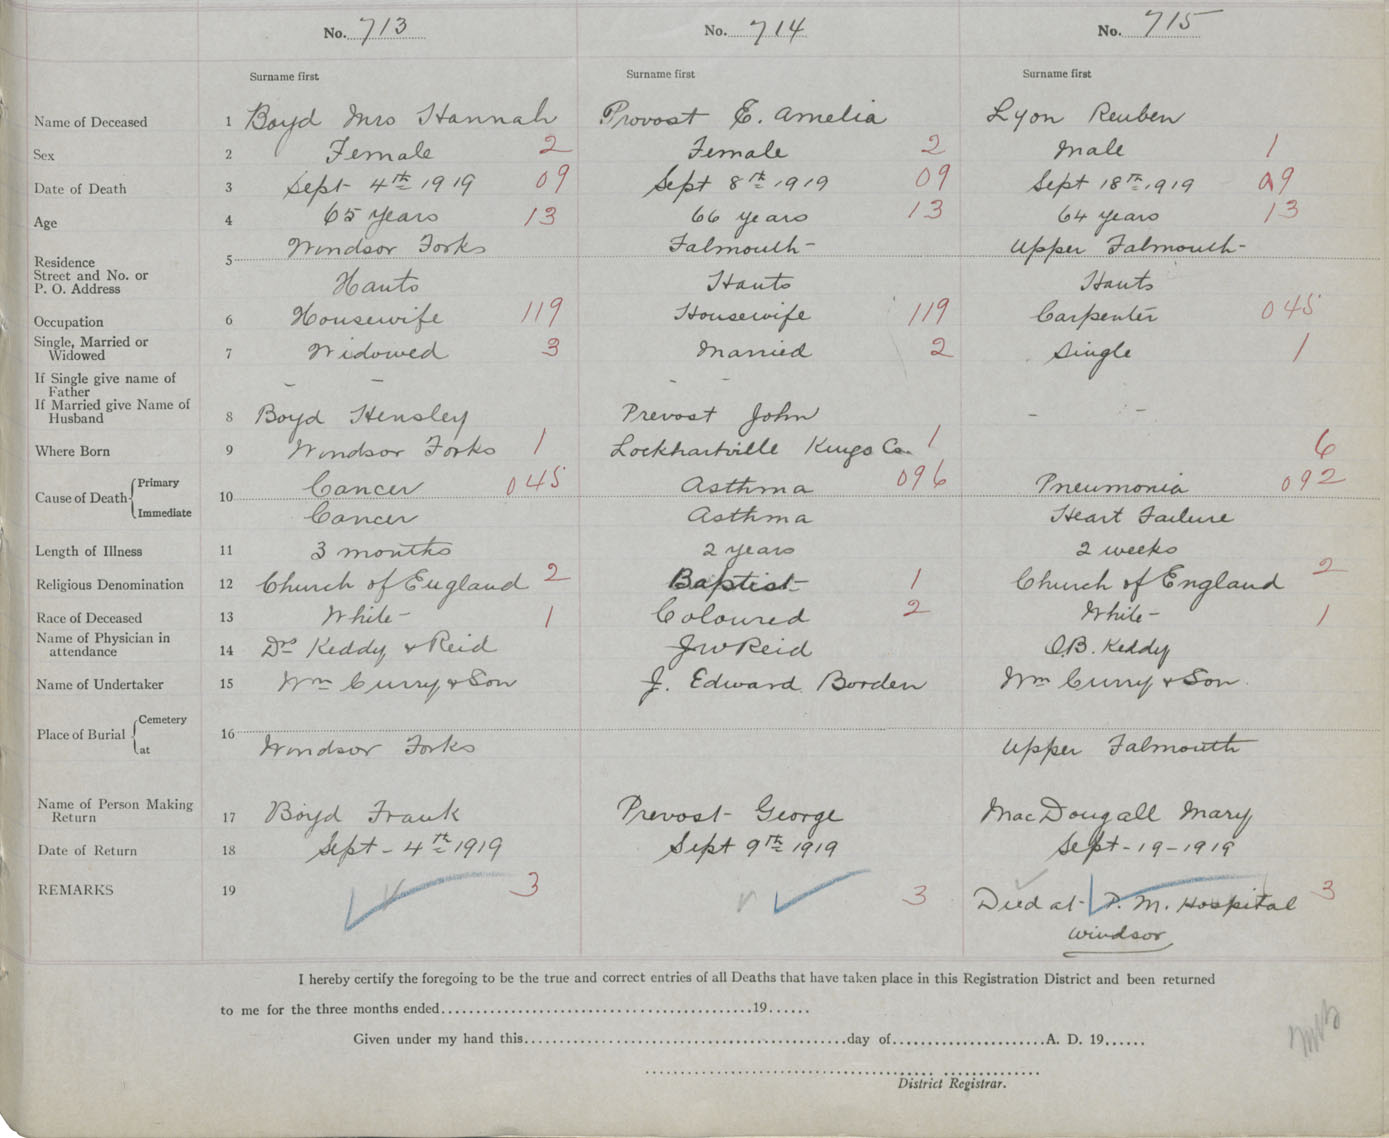 No. 713 No. 714 No. 715
Surname first Surname first Surname first
Name of Deceased 1 Boyd Mrs Hannah Provost E. Amelia Lyon Reuben
Sex 2 Female 2 Female 2 Male 1
Date of Death 3 Sept 4th 1919 09 Sept 8th 1919 09 Sept 18th 1919 09
Age 4 65 years 13 66 years 13 64 years 13
Windsor Forks Falmouth Upper Falmouth
Residence 5
Street and No. or
P. O. Address Hants Hants Hants
Occupation 6 Housewife 119 Housewife 119 Carpenter 045
Single, Married or
Widowed 7 Widowed 3 Married 2 Single 1
If Single give name of
Father - - - -
If Married give Name of
Husband 8 Boyd Hensley Prevost John - -
Where Born 9 Windsor Forks 1 Lockhartville Kings Co. 1 6
Cause of Death Primary 10 Cancer 045 Asthma 096 Pneumonia 092
Immediate Cancer Asthma Heart Failure
Length of Illness 11 3 months 2 years 2 weeks
Religious Denomination 12 Church of England 2 Baptist 1 Church of England 2
Race of Deceased 13 White 1 Coloured 2 White 1
Name of Physician in
attendance 14 Drs Keddy & Reid J W Reid O.B. Keddy
Name of Undertaker 15 Wm Curry & Son J. Edward Borden Wm Curry & Son
Place of Burial Cemetery 16
at Windsor Forks Upper Falmouth
Name of Person Making
Return 17 Boyd Frank Prevost George MacDougall Mary
Date of Return 18 Sept - 4th 1919 Sept 9th 1919 Sept - 19 - 1919
REMARKS 19 3 3 Died at P. M. Hospital 3
Windsor
I hereby certify the foregoing to be the true and correct entries of all Deaths that have taken place in this Registration District and been returned
to me for the three months ended 19
Given under my hand this day of A. D. 19
District Registrar.